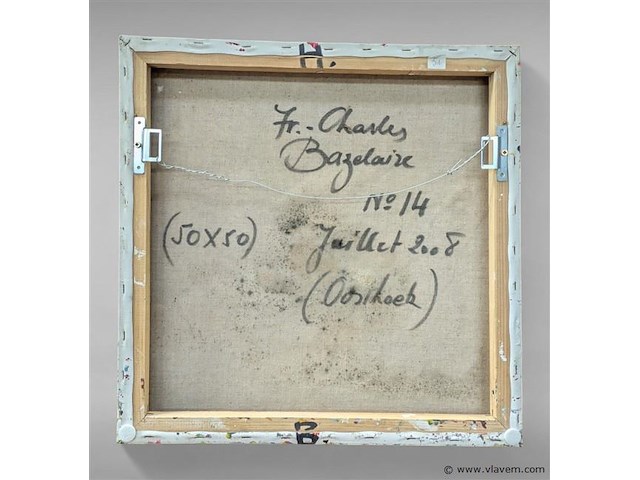 H.
51
Fr.-Charles
Bazelaire
No 14
(50x50)
Juillet 2008
(Oosthoek)
B.
© www.vlavem.com